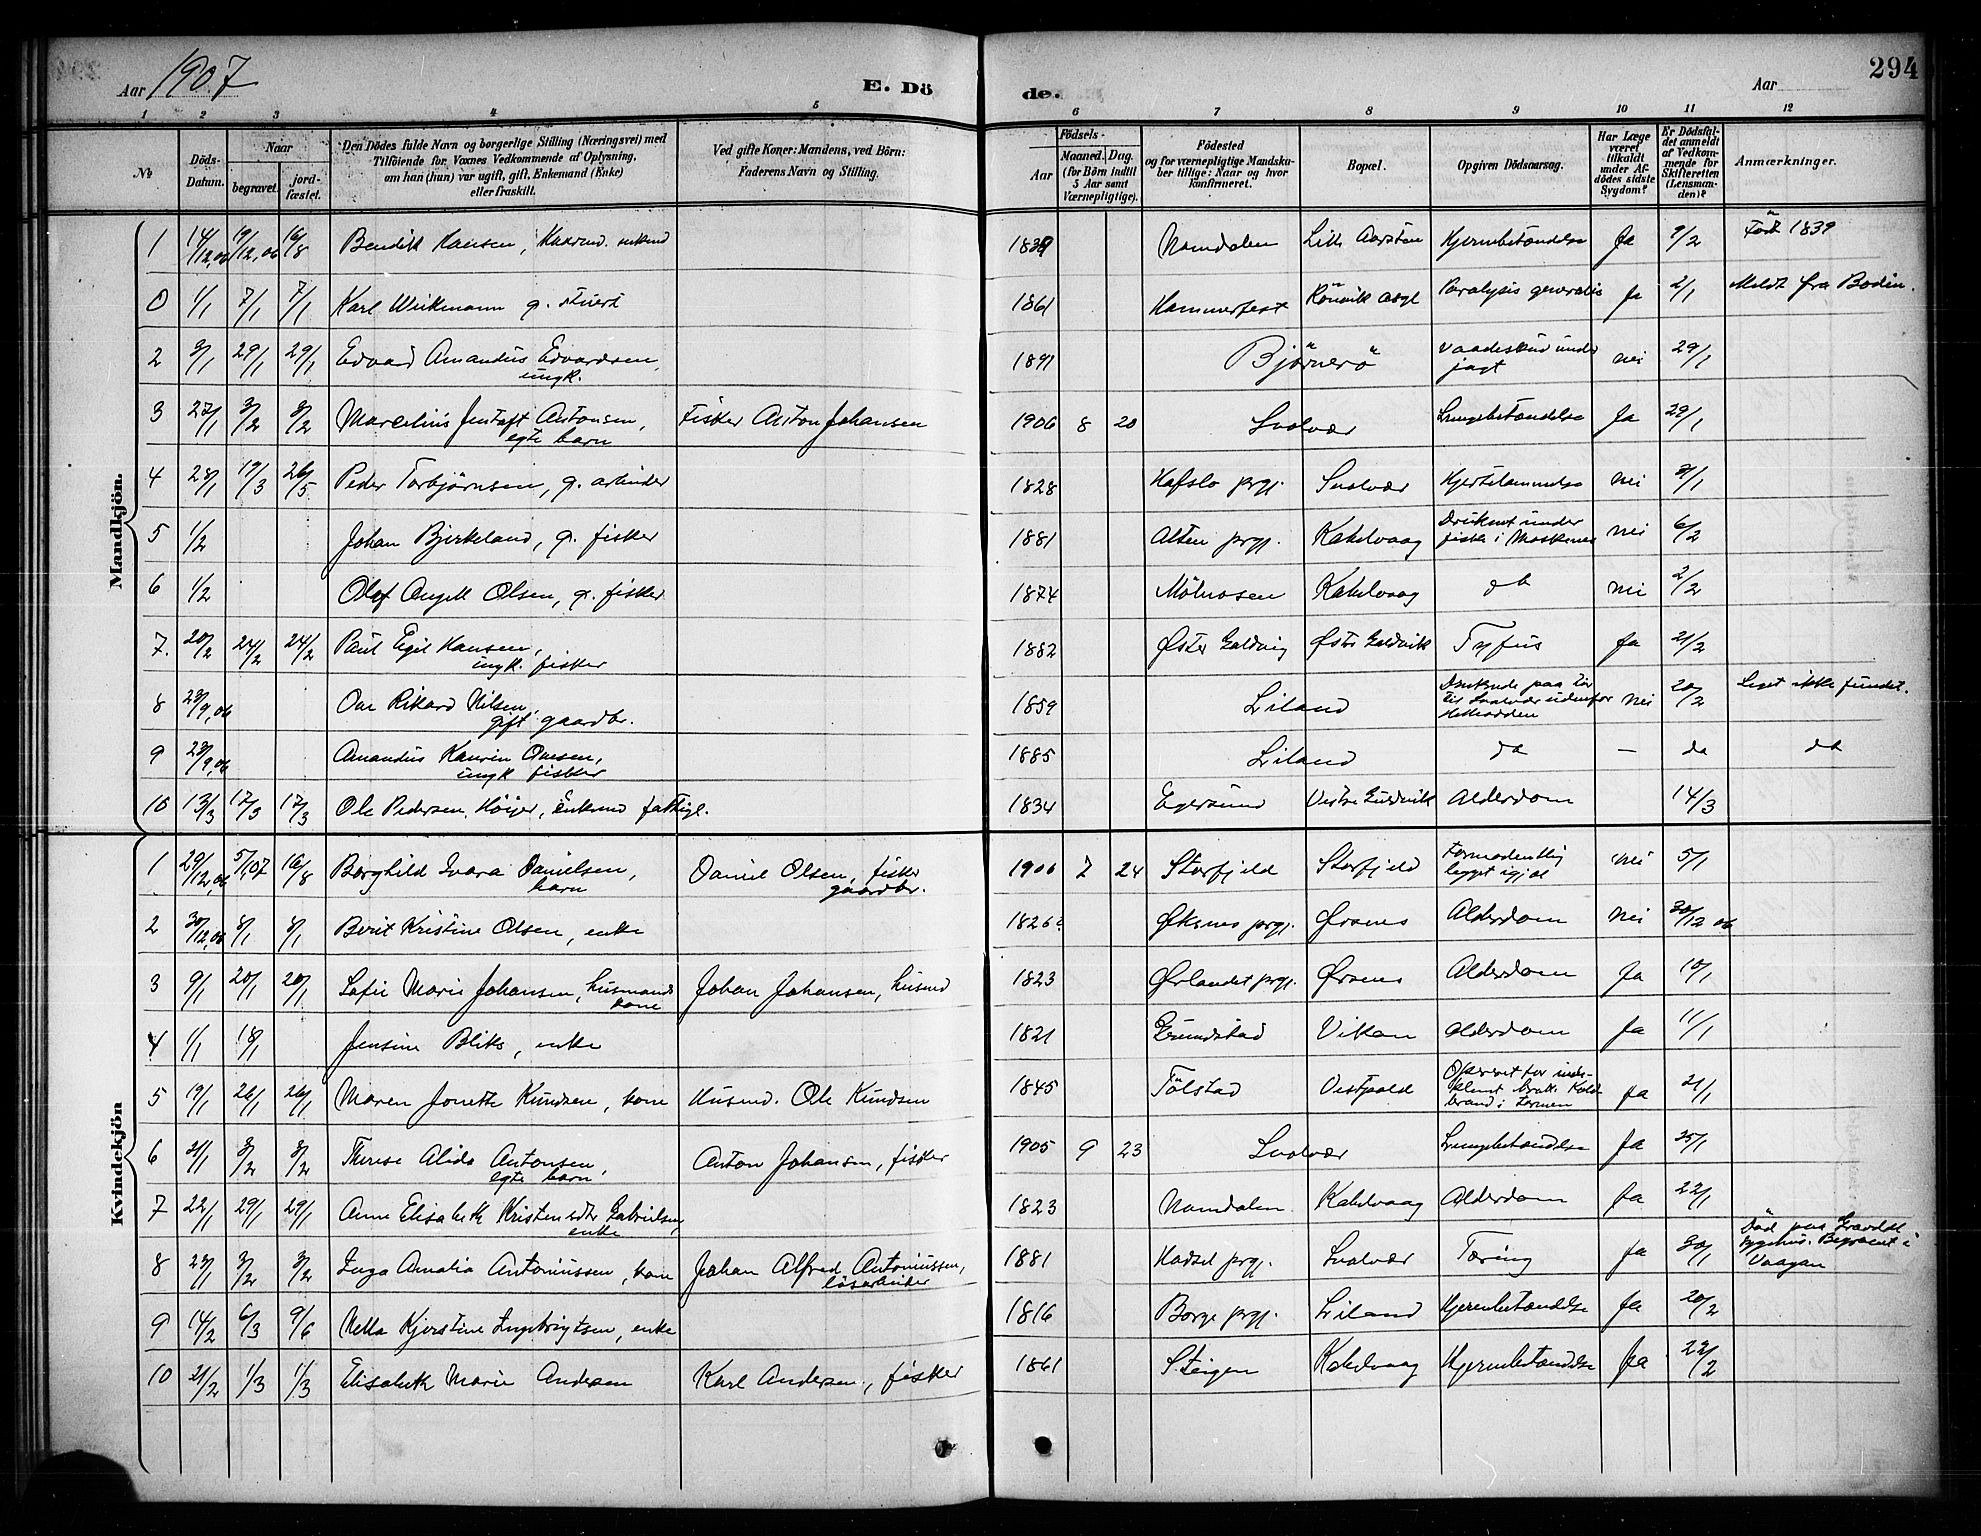 Aar 1907
E. Dö
de.
Aar
294
1 2 3 4 5 6 7 8 9 10 11 12
No
Döds-Datum.
Naar
begravet.
jordfæstet.
Den Dödes fulde Navn og borgerlige Stilling (Næringsvei) med
Tilföiende for Voxnes Vedkommende af Oplysning,
om han (hun) var ugift, gift, Enkemand (Enke)
eller fraskilt.
Ved gifte Koner: Mandens, ved Börn:
Faderens Navn og Stilling.
Födsels-
Aar
Maaned. Dag.
(for Börn indtil
5 Aar samt
Værnepligtige).
Födested
og for værnepligtige Mandskaber tillige: Naar og hvor
konfirmeret.
Bopæl.
Opgiven Dödsaarsag.
Har Læge været tilkaldt under Afdödes sidste Sygdom?
Er Dödsfaldet anmeldt af Vedkommende for Skifteretten (Lensmanden)?
Anmærkninger.
Mandkjön.
1 14/12,06 19/12,06 16/8 Bendik Hansen, enkemd 1839 Namdalen Hjernebetændelse Ja 9/2 Född 1839
0 1/1 7/1 7/1 Karl Wiikmann g. 1861 Hammerfest Rönvik asyl Paralysis generalis Ja 2/1 Meldt fra Bodin.
2 3/1 29/1 29/1 Edvard Amandus Edvardsen, ungk. 1891 Björnerö Vaadeskud under jagt nei 29/1
3 27/1 3/2 3/2 Marcelius Jentoft Antonsen, egte barn Fisker Anton Johansen 1906 8 20 Svolvær Lungebetændelse Ja 29/1
4 28/1 19/3 26/5 Peder Torbjørnsen, g. arbeider 1828 Hafslo prgj. Svolvær Hjertelammelse nei
5 1/2 Johan Bjerkeland, g. fisker 1881 Alten prgj. Kabelvaag Druknet under fiske i Moskenes nei 6/2
6 1/2 Olaf Angell Olsen, g. fisker 1874 Kabelvaag do nei 2/2
7. 20/2 24/2 24/2 Paul Egil Hansen, ungk. fisker 1882 Øster Tyfus Ja 21/2
8 23/9,06 Rikard Nilsen, gift gaardbr. 1859 Liland Druknede paa tur til Svolvær udenfor nei 20/2 Liget ikke fundet.
9 23/9,06 Amandus ungk. fisker 1885 Liland do — do do
10 13/3 17/3 17/3 Ole Pedersen Höier, Enkemd fattigl. 1834 Egersund Vestre Alderdom 14/3
Kvindekjön
1 29/12,06 5/1 07 16/8 Borghild Danielsen, barn Daniel Olsen, fisker gaardbr. 1906 7 24 Storfjeld Storfjeld Formodentlig ligget ihjel nei 5/1
2 30/12,06 8/1 8/1 Berit Kristine Olsen, enke 1826? Øksnes prgj. Ørsnes Alderdom Nei 30/12 06
3 9/1 20/1 20/1 Sofie Marie Johansen, husmands kone Johan Johansen, husmd 1823 Ørlandet prgj. Ørsnes Alderdom Ja 10/1
4 1/1 18/1 Jensine Bliks, enke 1821 Grundstad Vikan Alderdom Ja 11/1
5 19/1 26/1 26/1 Maren Jonette Knudsen, kone Husmd. Ole Knudsen 1845 Tölstad Vestpold Opereret for indeklemt brok. Koldbrand i tarmen Ja 21/1
6 21/1 3/2 3/2 Therese Alida Antonsen, egte barn. Anton Johansen, fisker 1905 9 23 Svolvær Lungebetændelse Ja 25/1
7 22/1 29/1 29/1 Anne Elisabeth Kristensdtr Gabrielsen, enke 1823 Namdalen Kabelvaag Alderdom Ja 22/1
8 23/1 3/2 3/2 Inga Amalia Antoniussen, kone Johan Alfred Antoniussen, lösarbeider 1881 Hadsel prgj. Svolvær Tæring Ja 30/1 Död paa Gravdal sygehus. Begravet i Vaagan
9 14/2 6/3 9/6 Kjerstine Ingebrigtsen, enke 1816 Borge prgj. Liland Hjernebetændelse Ja 20/2
10 21/2 1/3 1/3 Elisabeth Marie Andersen Karl Andersen, fisker 1861 Steigen Kabelvaag Hjernebetændelse Ja 22/2